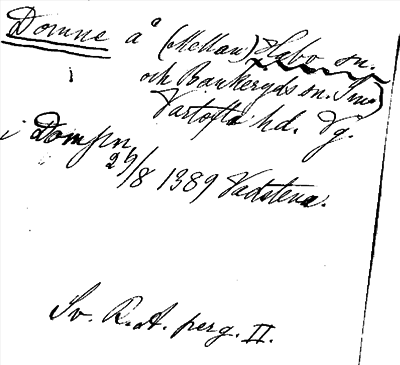 Domne å (mellan) Habo sn.
och Bankeryds sn. Sm.)
Vartofta hd. Vg.
i Dompn
29/8 1389 Vadstena.
Sv. R.A. perg. II.